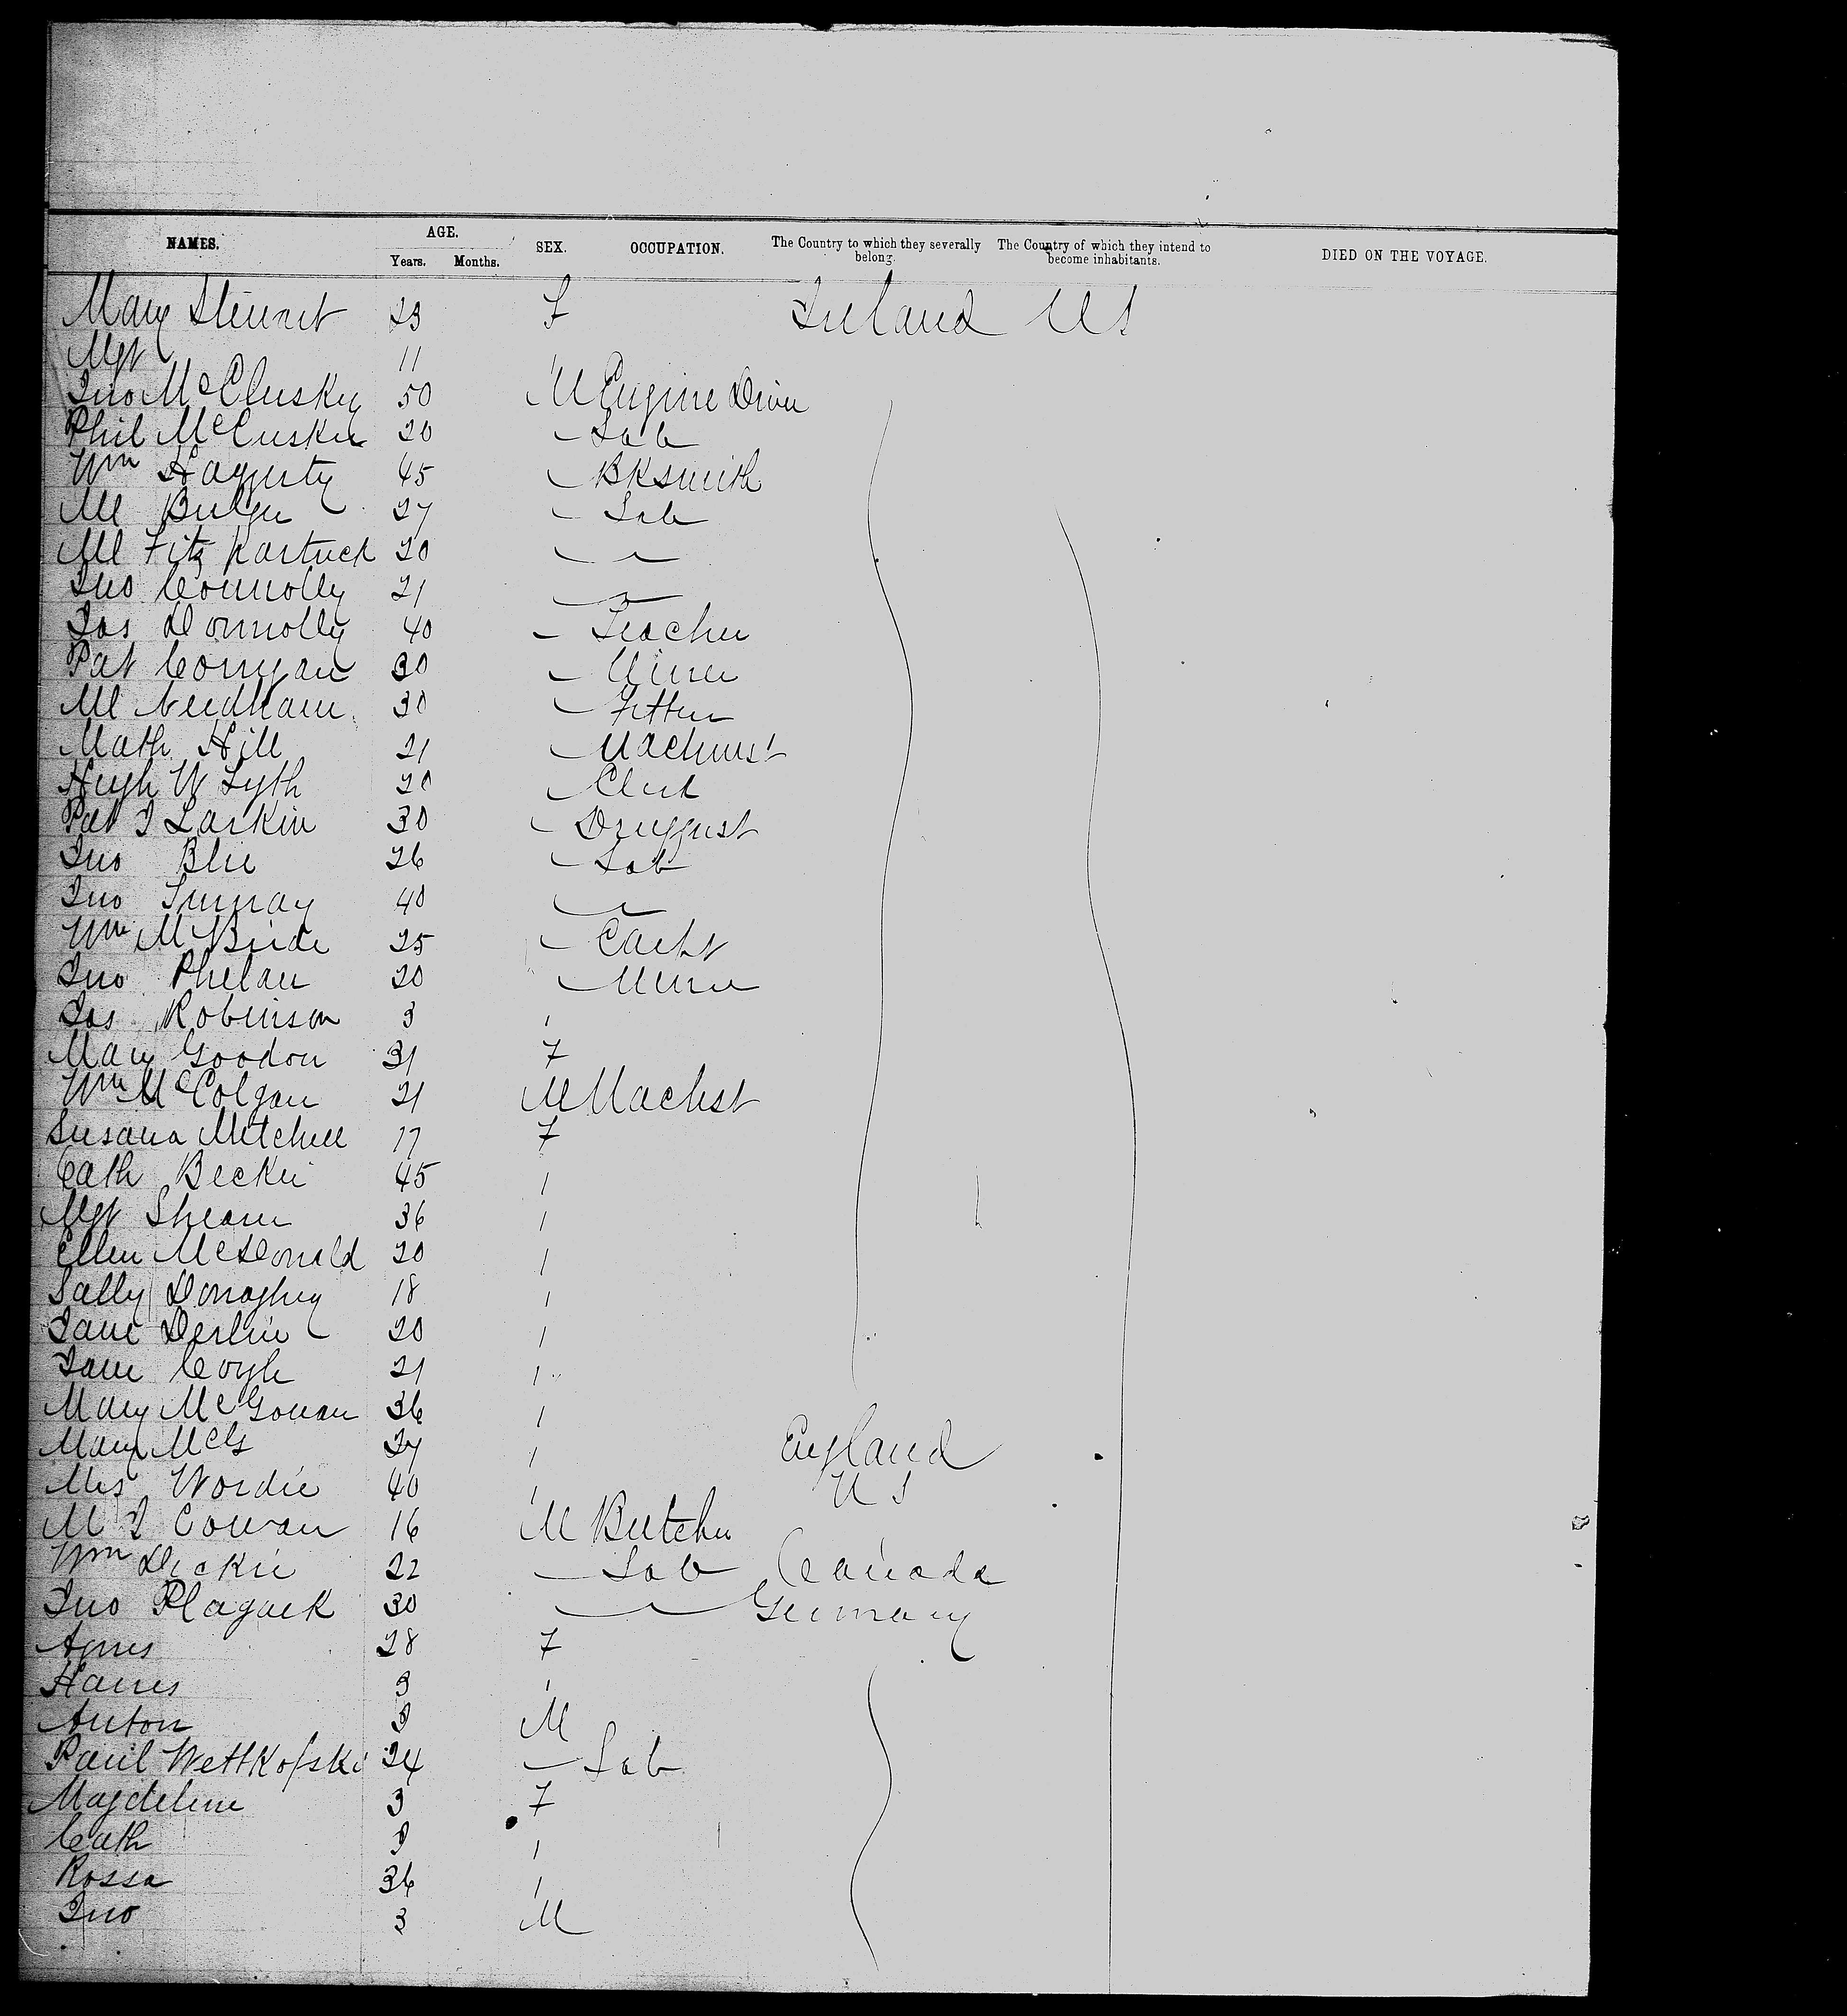 NAMES. AGE. SEX. OCCUPATION. The Country to which they severally belong. The Country of which they intend to become inhabitants. DIED ON THE VOYAGE.
Years. Months.
Mary Stewart 23 F Ireland US
Mgt 11
Jno McCluskey 50 M Engine Driver
Phil McCusker 20 Lab
Wm Haggerty 45 BKsmith
Ml Bulger 27 Lab
Ml Fitzpartrick 20
Jno Connolly 21
Jas Donnolly 40 Teacher
Pat Corrygan 30 Miner
Ml Needham 30 Fitter
Math Hill 21 Machinist
Hugh W Lyth 20 Clerk
Pat J Larkin 30 Druggist
Jno 26 Lab
Jno 40
Wm McBride 25
Jno Phelan 20 Miner
Jas Robinson 3
Mary Goodon 31 F
Wm McColgan 21 M Machst
Susana Mitchell 17 F
Cath Becker 45
Mgt 36
Ellen McDonald 20
Sally Donaghey 18
Jane Devlin 20
Jane Coyle 21
Mary McGowan 36
Mary McG England
Mrs Wordie 40 US
M J Cowan 16 M Butcher
Wm Dickie 22 Lab Canada
Jno 30 Germany
Agnes 28 F
3
Anton M
Paul Wettkofski 24 Lab
Magdelene 3 F
Cath
Rossa 36
Jno 3 M